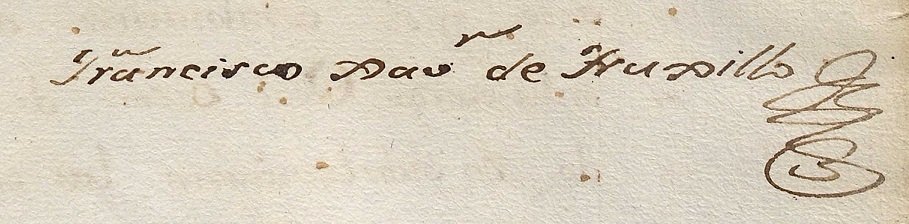 Francisco Xavʳ de Truxillo